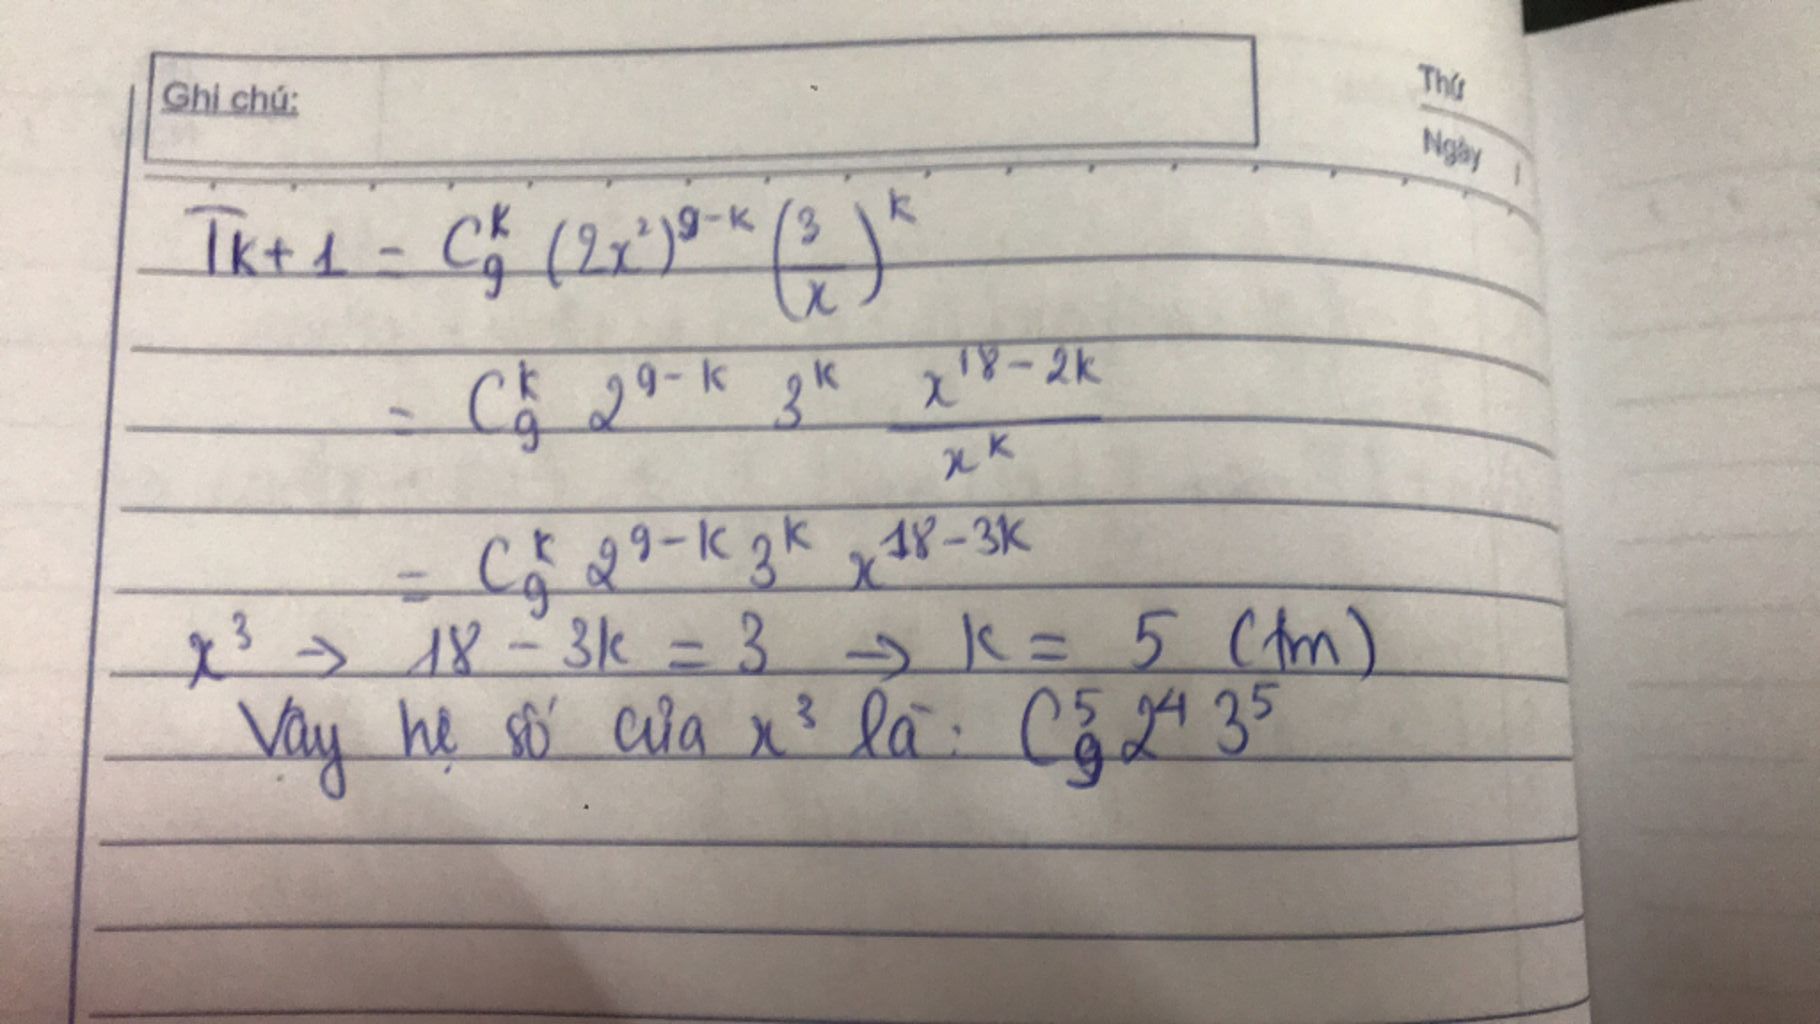 Ghi chú:
Thứ
Ngày
T_{k+1} = C_9^k (2x²)^{9-k} (3/x)^k
= C_9^k 2^{9-k} 3^k x^{18-2k}/x^k
= C_9^k 2^{9-k} 3^k x^{18-3k}
x³ → 18 - 3k = 3 → k = 5 (tm)
Vậy hệ số của x³ là: C_9^5 2^4 3^5